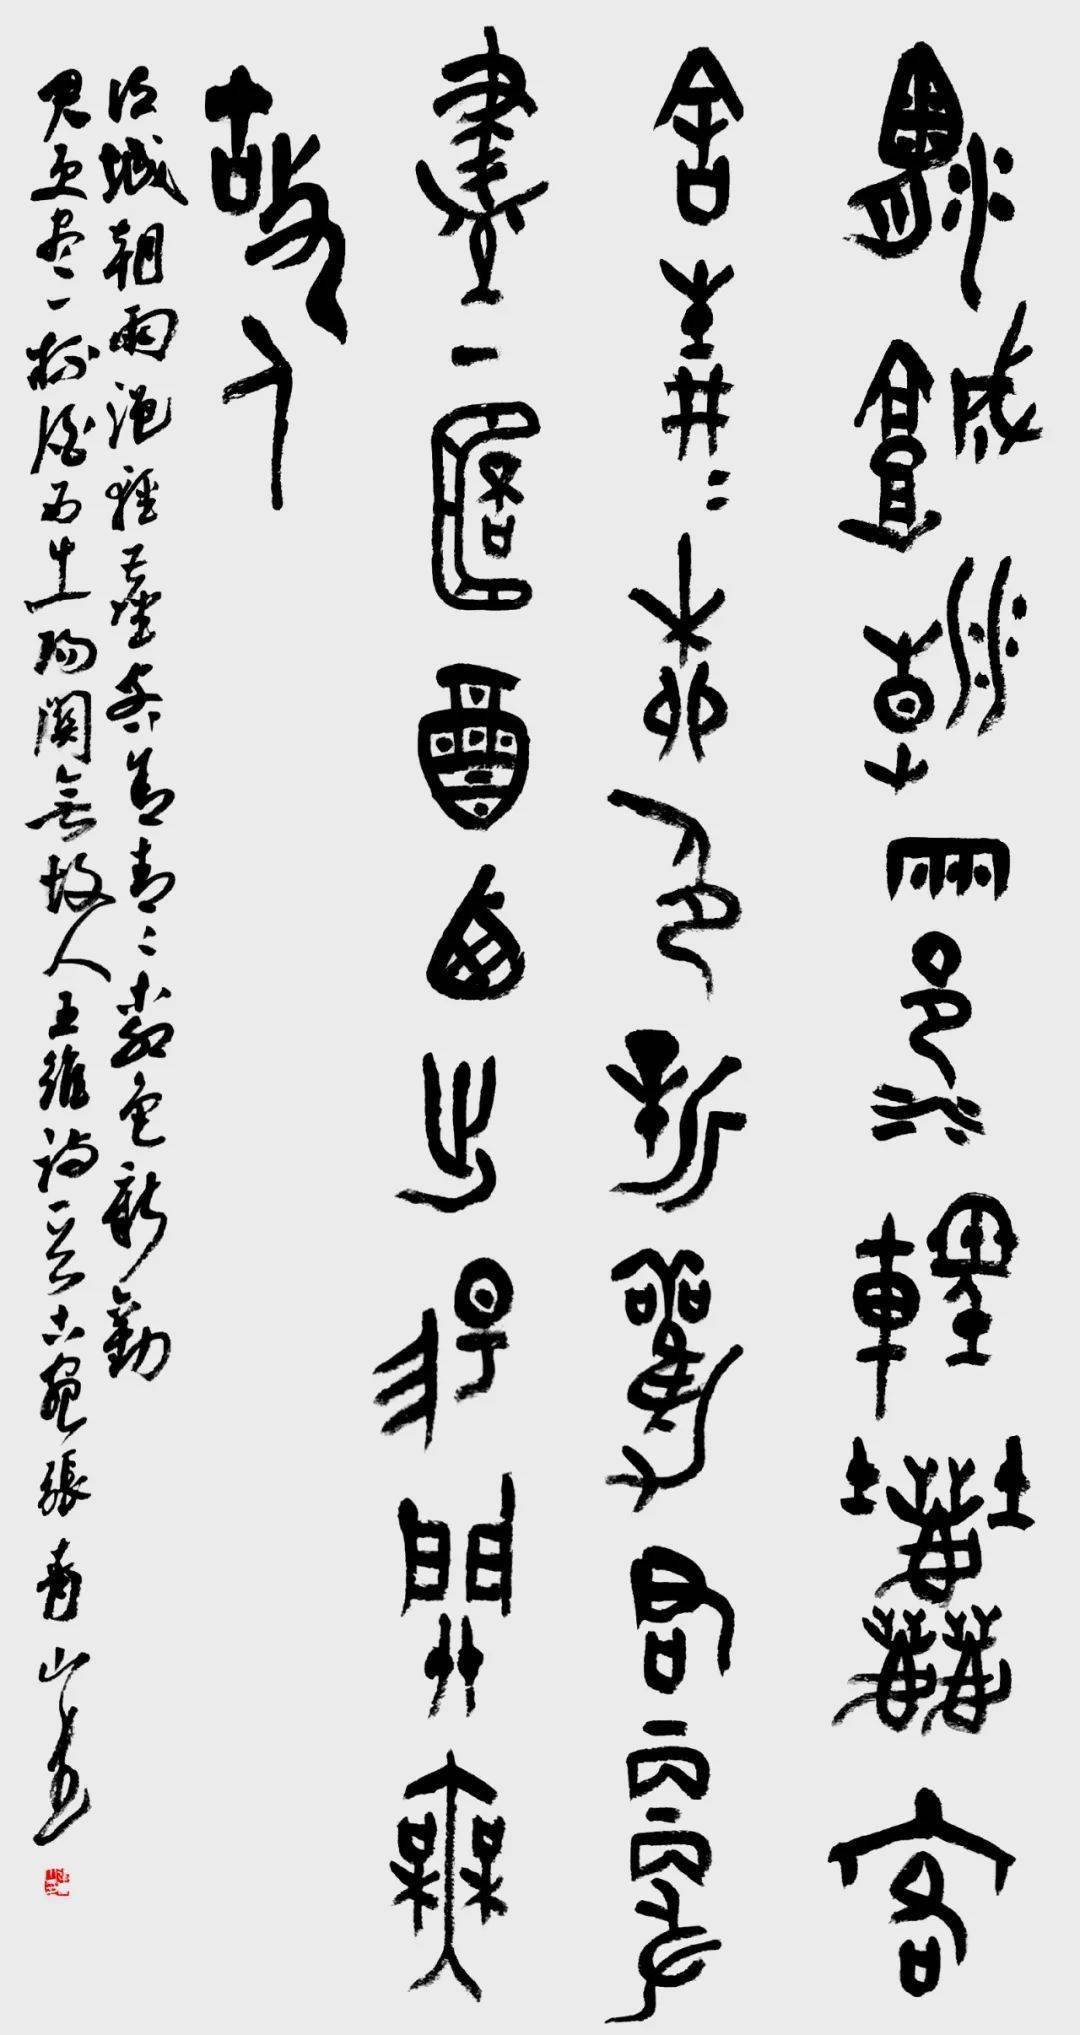 渭城朝雨浥輕塵客
舍青〻柳色新勸君更
盡一杯酒西出陽關無
故人
渭城朝雨浥輕塵客舍青〻柳色新勸
君更盡一杯酒西出陽關無故人王維詩一首古宛張青山書